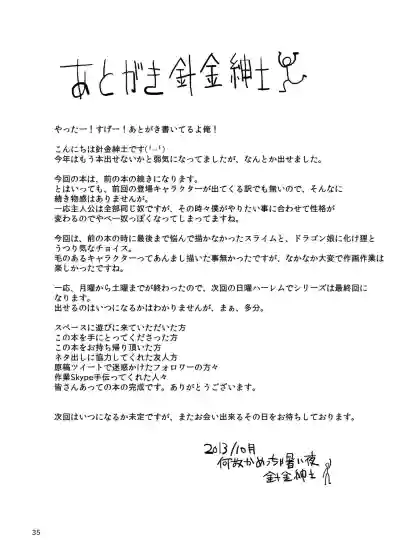 あとがき 針金紳士
やったー！すげー！あとがき書いてるよ俺！
こんにちは針金紳士です(╹◡╹)
今年はもう本出せないかと弱気になってましたが、なんとか出せました。
今回の本は、前の本の続きになります。
とはいっても、前回の登場キャラクターが出てくる訳でも無いので、そんなに
続き物感はありませんが。
一応主人公は全部同じ奴ですが、その時々僕がやりたい事に合わせて性格が
変わるのでやべー奴っぽくなってしまってますね。
今回は、前の本の時に最後まで悩んで描かなかったスライムと、ドラゴン娘に化け狸と
うつり気なチョイス。
毛のあるキャラクターってあんまし描いた事無かったですが、なかなか大変で作画作業は
楽しかったですね。
一応、月曜から土曜までが終わったので、次回の日曜ハーレムでシリーズは最終回に
なります。
出せるのはいつになるかはわかりませんが、まぁ、多分。
スペースに遊びに来ていただいた方
この本を手にとってくださった方
この本をお持ち帰り頂いた方
ネタ出しに協力してくれた友人方
原稿ツイートで迷惑かけたフォロワーの方々
作業Skype手伝ってくれた人々
皆さんあっての本の完成です。ありがとうございます。
次回はいつになるか未定ですが、またお会い出来るその日をお待ちしております。
2013/10月
何故かめっちゃ暑い夜
針金紳士
35